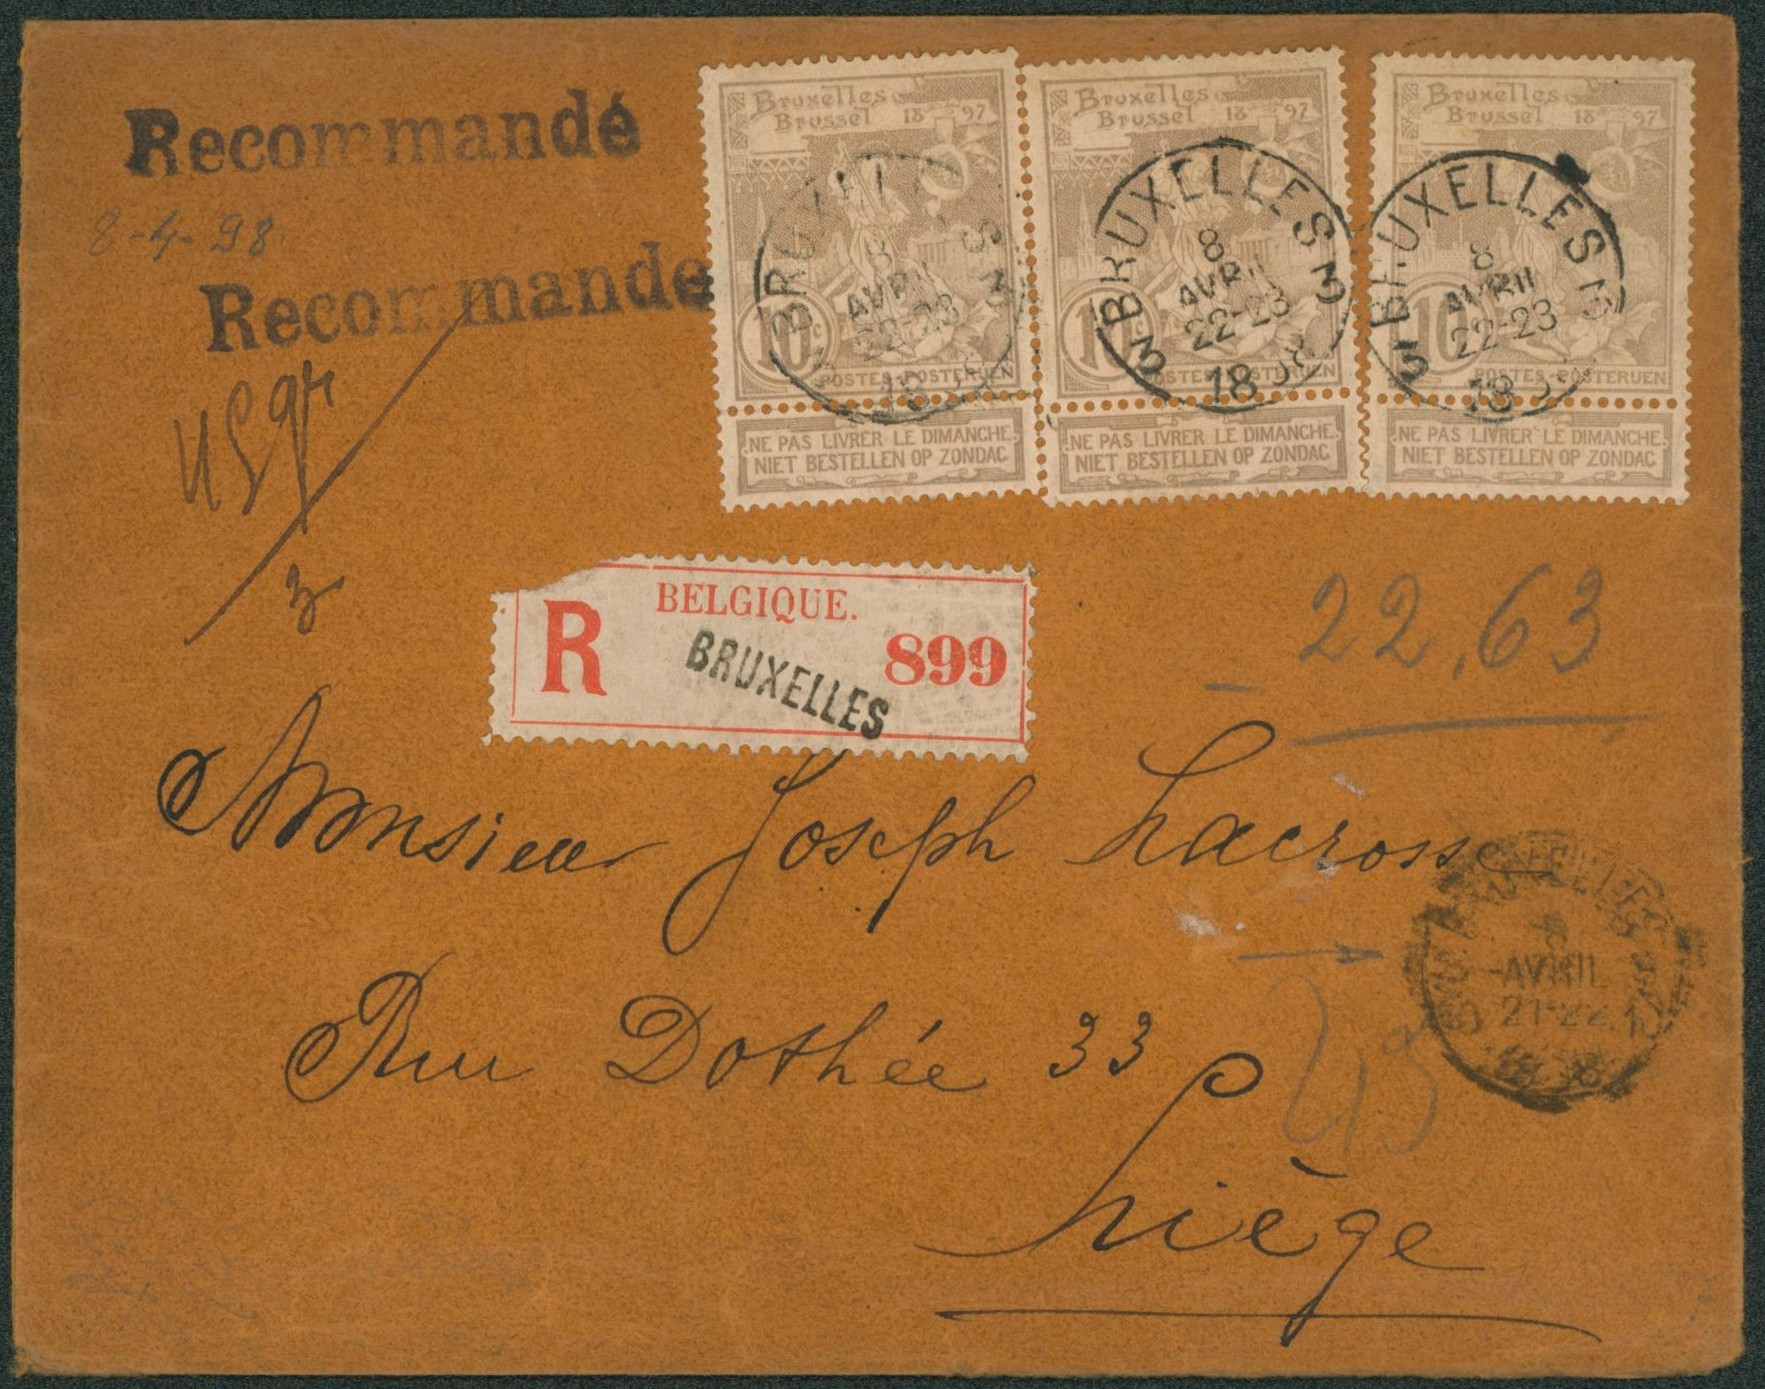 Recommandé
8-4-98
Recommandé
3
Bruxelles
Brussel 18 97
10c
POSTES-POSTERIJEN
NE PAS LIVRER LE DIMANCHE.
NIET BESTELLEN OP ZONDAG
Bruxelles
Brussel 18 97
POSTES-POSTERIJEN
NE PAS LIVRER LE DIMANCHE.
NIET BESTELLEN OP ZONDAG
Bruxelles
Brussel 18 97
10
POSTES-POSTERIJEN
NE PAS LIVRER LE DIMANCHE.
NIET BESTELLEN OP ZONDAG
BRUXELLES 3
8
AVRIL
22-23
3 BRUXELLES 3
8
AVRIL
22-23
1898
3 BRUXELLES 3
8
AVRIL
22-23
18
R BELGIQUE. 899
BRUXELLES
22,63
Monsieur Joseph Lacrosse
Rue Dothée 33
Liège
AVRIL
21-22